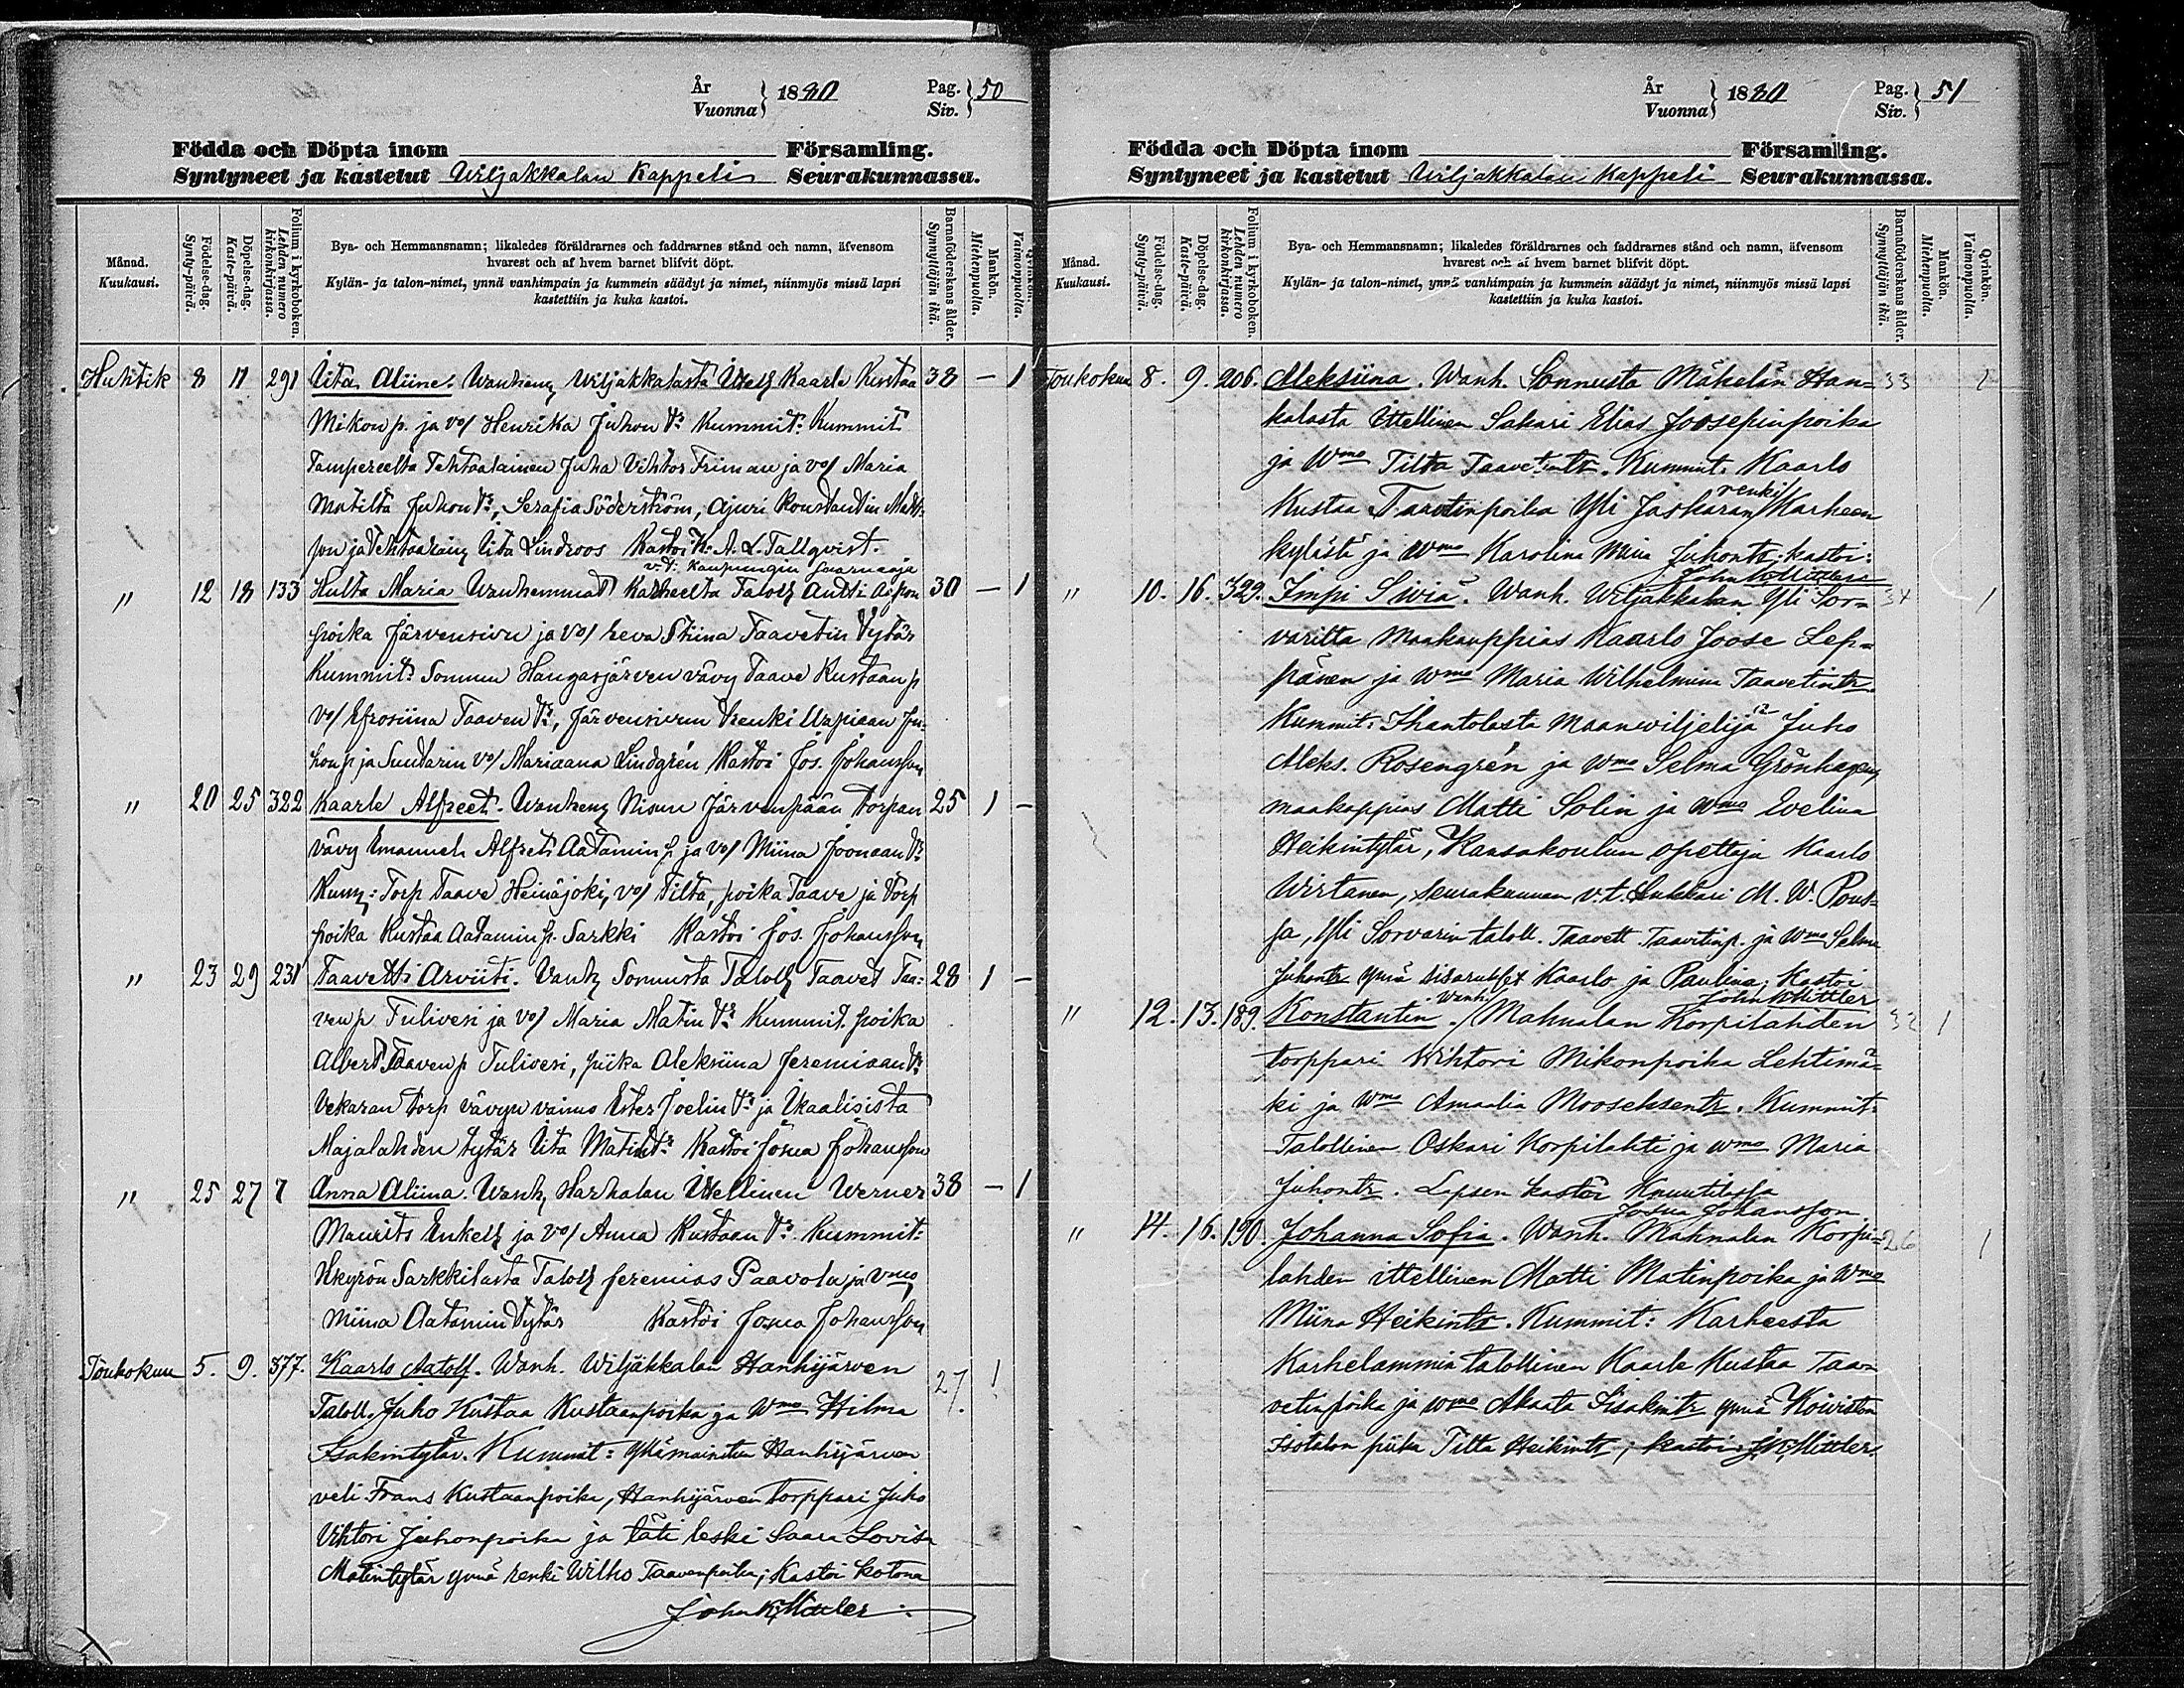 År
Vuonna } 1880 Pag.
Siv. } 50
Födda och Döpta inom Församling.
Syntyneet ja kastetut Viljakkalan Kappeli Seurakunnassa.
Månad.
Kuukausi.
Födelse-dag.
Synty-päivä.
Döpelse-dag.
Kaste-päivä.
Folium i kyrkoboken.
Lehden numero kirkonkirjassa.
Bya- och Hemmansnamn; likaledes föräldrarnes och faddrarnes stånd och namn, äfvensom
hvarest och af hvem barnet blifvit döpt.
Kylän- ja talon-nimet, ynnä vanhimpain ja kummein säädyt ja nimet, niinmyös missä lapsi
kastettiin ja kuka kastoi.
Barnaföderskans ålder.
Synnyttäjän ikä.
Mankön.
Miehenpuolta.
Qvinkön.
Vaimonpuolta.
Huhtik 8 11 291 Iita Aliina. Wanhem Viljakkalasta Itell Kaarle Kustaa 38 – 1
Mikon p. ja vo/ Henrika Juhon tr Kummit: Kummit
Tampereelta Tehtaalainen Juha Vihtor Friman ja vo/ Maria
Matilta Juhon tr, Serafia Söderström, Ajuri Konstantin Matt-
son ja Tehtaalain Iita Lindroos Kastoi K: A. L. Tallqvist.
v.t: Kaupungin Saarnaaja
" 12 18 133 Hulta Maria Wanhemmat Karheelta Taloll Antti 30 – 1
poika Järvensivu ja vo/ Eeva Stiina Taavetin tytär
Kummit: Sonnun Haugasjärven vävy Taave Kustaan p
vo/ Efrosiina Taaven tr, Järvensivun renki Uspiaan Ju-
hon p ja Suutarin vo/ Mariaana Lindgrén Kastoi Jos. Johansson
" 20 25 322 Kaarle Alfreet. Wanhem Nisun Järvenpään torpan 25 1 –
vävy Emanuel Alfret Aatamin p ja vo/ Miina Joonaan tr
Kumm: Torp Taave Heinäjoki, vo/ Tilta, poika Taave ja Torp
poika Kustaa Aatamin p. Sarkki Kastoi Jos. Johansson
" 23 29 231 Taavetti Arviiti. Vanh Sonnusta Taloll Taavet Taa- 28 1 –
ven p Tulivesi ja vo/ Maria Matin tr Kummit. poika
Albert Taaven p Tulivesi, piika Aleksiina Jeremiaan tr
Vekaran torp vävyn vaimo Ester Joelin tr ja Ikaalisista
Majalahden tytär Iita Matin tr Kastoi Josua Johansson
" 25 27 7 Anna Aliina. Wanh, Harhalan Itellinen Werner 38 – 1
Maurits Enkell ja vo/ Anna Kustaan tr. Kummit:
Hkyrön Sarkkilasta Taloll Jeremias Paavola ja vmo
Miina Aatamin tytär Kastoi Josua Johansson
Toukokuu 5. 9. 377. Kaarlo Aatolf. Wanh. Wiljakkalan Hanhijärven 27. 1
Taloll. Juho Kustaa Kustaanpoika ja Wmo Hilma
Isakintytär. Kummit: Ylhämainitun Hanhijärven
veli Frans Kustaanpoika, Hanhijärven torppari Juho
Vihtori Juhonpoika ja täti leski Saara Lovisa
Matintytär ynnä renki Wilho Taavenpoika; Kastoi kotona
John K. Mittler
År
Vuonna } 1880 Pag.
Siv. } 51
Födda och Döpta inom Församling.
Syntyneet ja kastetut Viljakkalan Kappeli Seurakunnassa.
Månad.
Kuukausi.
Födelse-dag.
Synty-päivä.
Döpelse-dag.
Kaste-päivä.
Folium i kyrkoboken.
Lehden numero kirkonkirjassa.
Bya- och Hemmansnamn; likaledes föräldrarnes och faddrarnes stånd och namn, äfvensom
hvarest och af hvem barnet blifvit döpt.
Kylän- ja talon-nimet, ynnä vanhimpain ja kummein säädyt ja nimet, niinmyös missä lapsi
kastettiin ja kuka kastoi.
Barnaföderskans ålder.
Synnyttäjän ikä.
Mankön.
Miehenpuolta.
Qvinkön.
Vaimonpuolta.
Toukokuu 8. 9. 206. Aleksiina. Wanh. Sonnusta Mäkelän Han- 33 1
kalasta ittellinen Sakari Elias Joosepinpoika
ja Wmo Tilta Taavetintr. Kummit. Kaarlo
Kustaa Taavetinpoika Yli Jaskaran renki Karheen
kylästä ja Wmo Karolina Miina Juhontr; kastoi:
John K. Mittler
" 10. 16. 329. Impi Siviä. Wanh. Wiljakkalan Yli Sor- 34 1
varilta Maakauppias Kaarlo Joose Lep-
pänen ja Wmo Maria Wilhelmina Taavetintr.
Kummit: Ihantolasta maanwiljelijä Juho
Aleks. Rosengrén ja Wmo Selma Grönhagen
maakappias Matti Solin ja Wmo Evelina
Heikintytär, Kansakoulun opettaja Kaarlo
Wirtanen, seurakunnan v.t. Lukkari M. W. Pont-
sa, Yli Sorvarin taloll. Taavett Taavetinp. ja Wmo Selma
Juhontr ynnä sisarukset Kaarlo ja Paulina; Kastoi
John K. Mittler
" 12. 13. 189. Konstantin. Wanh. Mahnalan Korpilahden 32 1
torppari Wihtori Mikonpoika Lehtimä-
ki ja Wmo Amaalia Mooseksentr. Kummit:
Talollinen Oskari Korpilahti ja Wmo Maria
Juhontr. Lapsen kastoi Knuutilassa
Josua Johansson
" 14. 16. 190. Johanna Sofia. Wanh. Mahnalan Korpi- 26 1
lahden ittellinen Matti Matinpoika ja Wmo
Miina Heikintr. Kummit: Karheesta
Karhelammin talollinen Kaarle Kustaa Taa-
vetinpoika ja wmo Akaata Iisakintr ynnä Koiviston
isotalon piika Tilta Heikintr; kastoi J. K. Mittler.